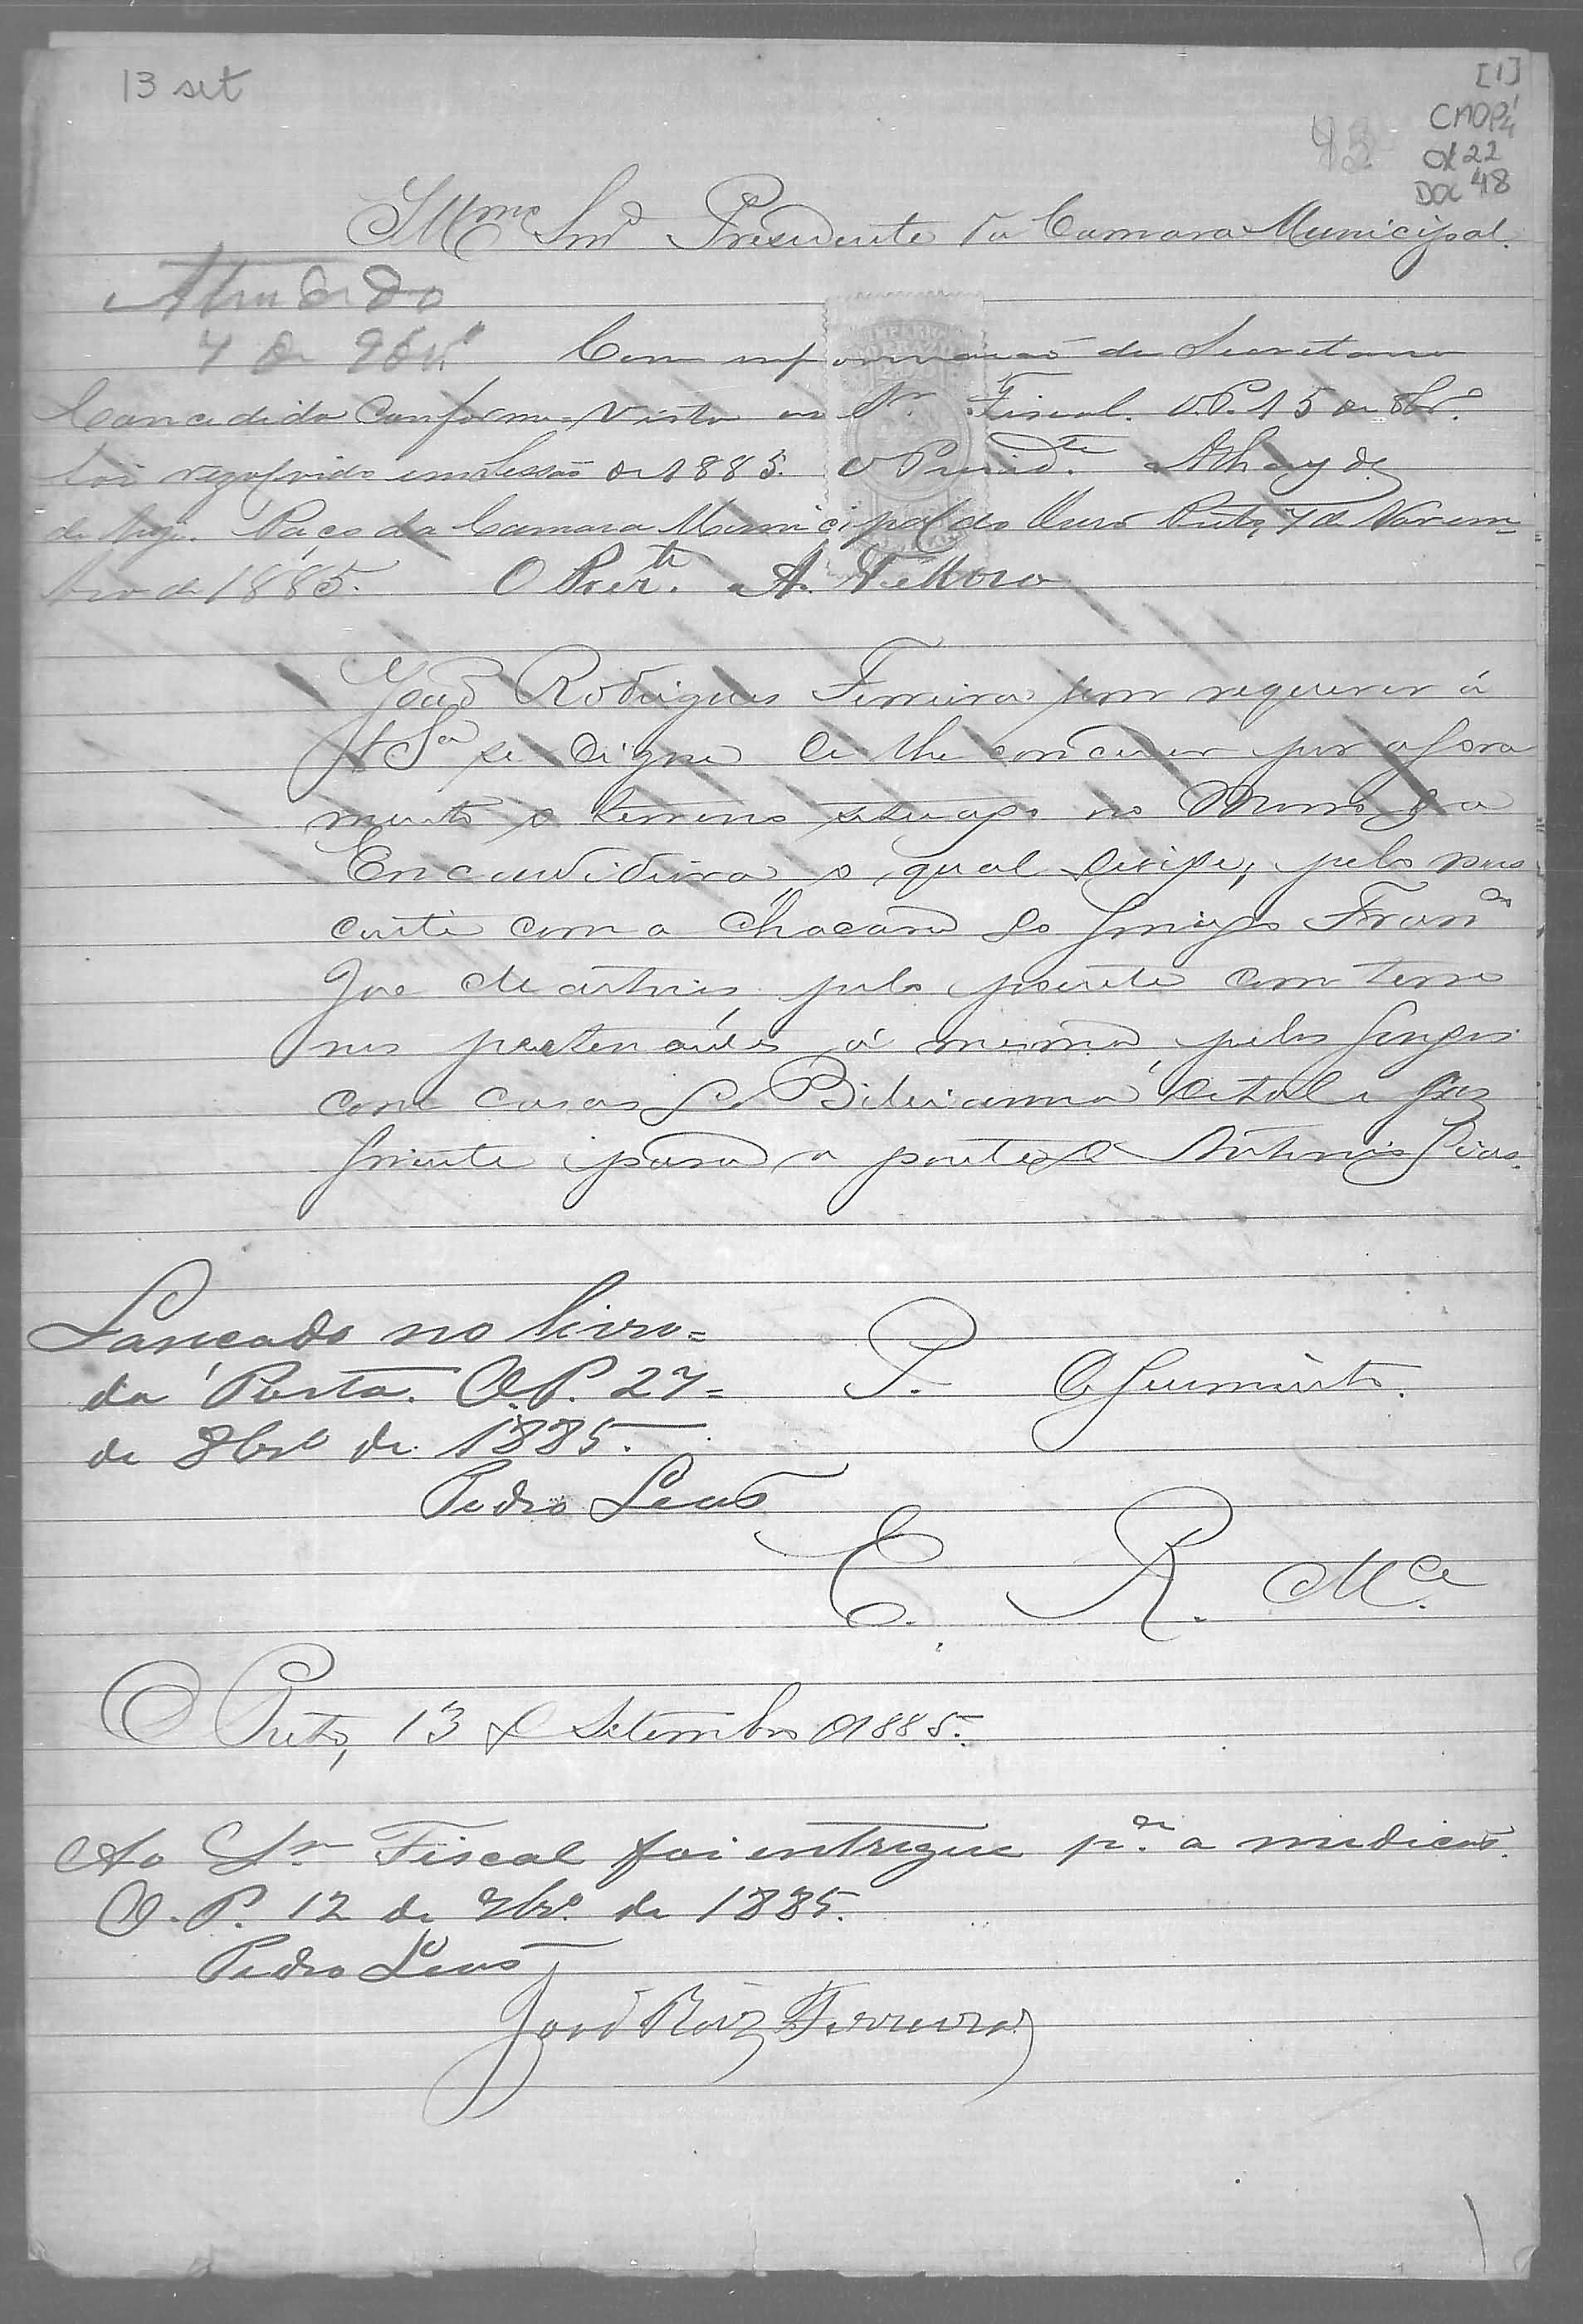 13 set
[1]
CMOP
CX 22
DOC 48
Illmo Snr Presidente da Camara Municipal.
4 de 9br.o Com informação do Secretario
Concedido conforme Visto ao Sr. Fiscal. O.P. 15 de 8br.o
foi rezolvido em Sessão de 1885. O Presid.te Athayde
de hoje. Paço da Camara Municipal do Ouro Preto, 7 de Novem-
bro de 1885. O Prez.te A. Velloso
João Rodrigues Ferreira vem requerer á
V Sa se digne de lhe conceder por afora
mento o terreno situado no Morro da
Encardideira, o qual divide, pelo nas
cente com a chacara do Conego Fran.co
Joe Martins, pelo poente com terre
nos pertencentes á mesma, pelos fundos
com casas de Bibianna de tal e faz
frente para a ponte de Antonio Dias.
Lançado no livro=
da Porta. O.P. 27=
de 8br.o de 1885.
Pedro Leão
P. Deferimento.
E. R. M.ce
O Preto, 13 de Setembro de 1885.
Ao Sr. Fiscal foi entregue p.a a medição.
O. P. 12 de 9br.o de 1885.
Pedro Leão
João Roiz Ferreira